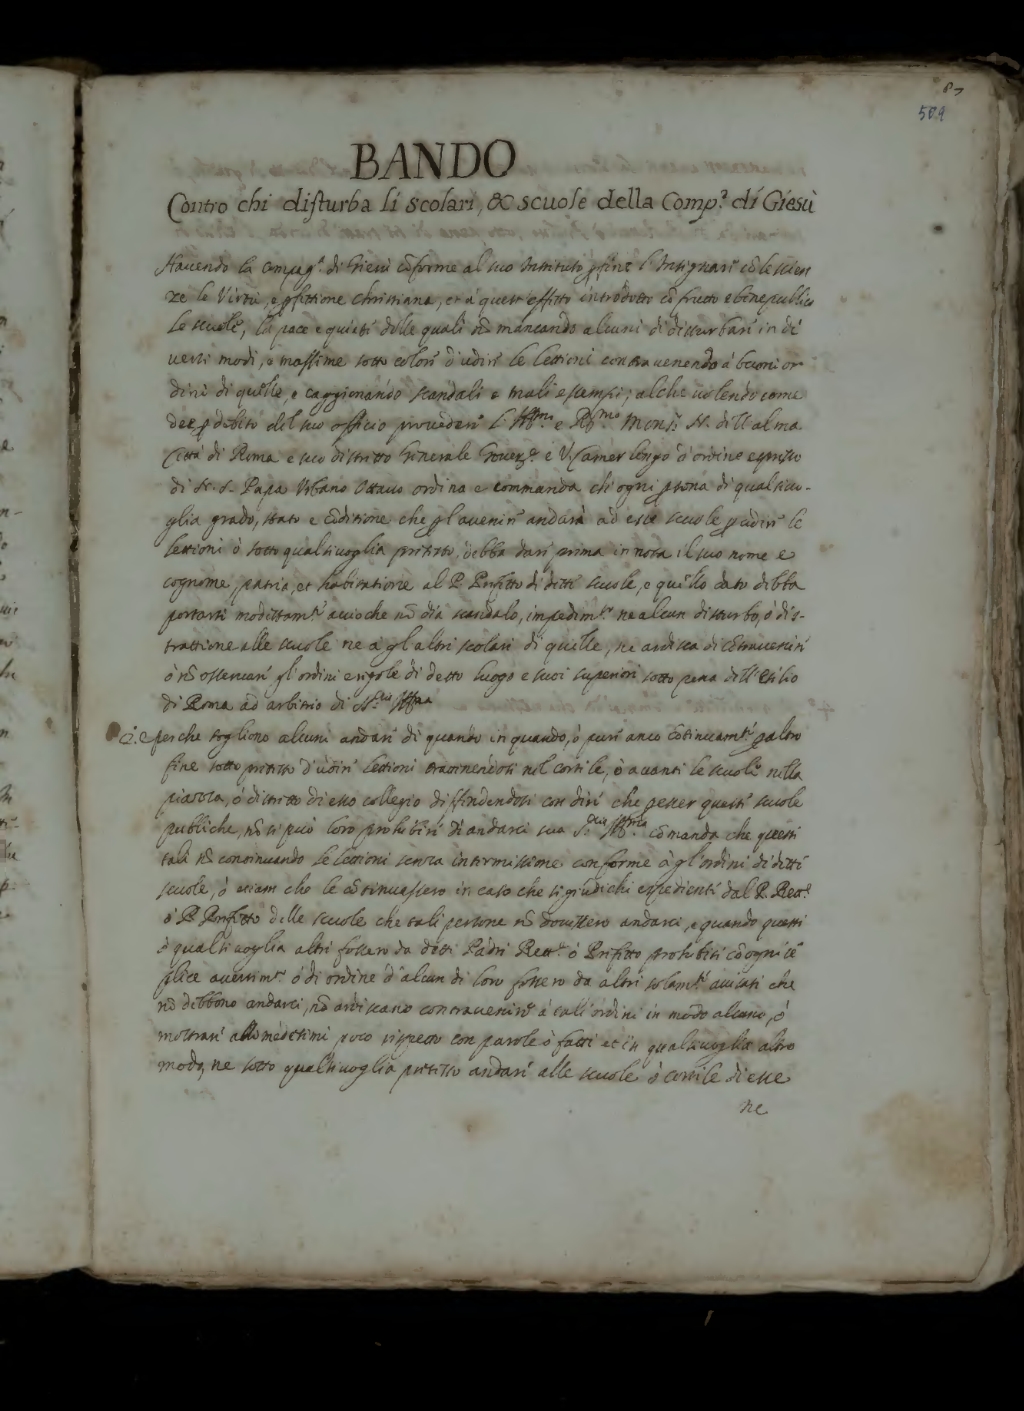 87
509
BANDO
Contro chi disturba li scolari, & scuole della Comp.ª di Giesù
Havendo la Compag.ª di Giesù cõforme al suo Instituto p fine l'Insegnare cõ le scien
ze le Virtù, e pfettione christiana, et à quest'effetto introdotto cõ frutto e bene publico
le scuole, la pace e quieti delle quali nõ mancando alcuni di disturbare in di
versi modi, e massime sotto colore d'udire le lettioni contravenendo à buoni or
dini di quelle, e caggionando scandali e mali essempi; al che volendo come
deve p debito del suo officio provedere l'Ill.mo e R.mo Mons.r N. dell'alma
Città di Roma e suo distretto Generale Govern.re e V. Camerlengo d'ordine espresso
di N. S. Papa Urbano Ottavo ordina e commanda ch'ogni psona di qualsivo-
glia grado, stato e cõditione che p l'avenire andarà ad esse scuole p udire le
lettioni ò sotto qualsivoglia pretesto, debba dare prima in nota il suo nome e
cognome, patria, et habitatione al P. Prefetto di dette scuole, e quello dato debba
portarsi modestam.te acciò che nõ dia scandalo, impedim.to ne alcun disturbo, ò dis-
trattione alle scuole ne à gl'altri scolari di quelle, ne ardisca di cõtravenire
ò nõ osservare gl'ordini e regole di detto luogo e suoi superiori sotto pena dell'Esilio
di Roma ad arbitrio di S. S.ria Ill.ma
2. E perche sogliono alcuni andare di quando in quando, ò pure anco cõtinuam.te p altro
fine sotto pretesto d'udire lettioni trattenendosi nel cortile, ò avanti le scuole nella
piazza, ò distretto di esso collegio diffendendosi con dire che p esser queste scuole
publiche, nõ si può loro prohibire di andarci sua S.ria Ill.ma cõmanda che questi
tali nõ continuando le lettioni senza intermissione conforme à gl'ordini di dette
scuole, ò etiam che le cõtinuassero in caso che si giudichi espediente dal P. Rett.re
ò P. Prefetto delle scuole che tali persone nõ dovessero andarci, e quando questi
ò qualsivoglia altri fossero da detti Padri Rett.re ò Prefetto prohibiti cõ ogni sẽ
plice avertim.to ò di ordine d'alcun di loro fossero da altri solam.te avisati che
nõ debbono andarci, nõ ardiscano contravenire à tali ordini in modo alcuno, ò
mostrare alli medesimi poco rispetto con parole ò fatti et in qualsivoglia altro
modo, ne sotto qualsivoglia pretesto andare alle scuole ò cortile di esse
ne